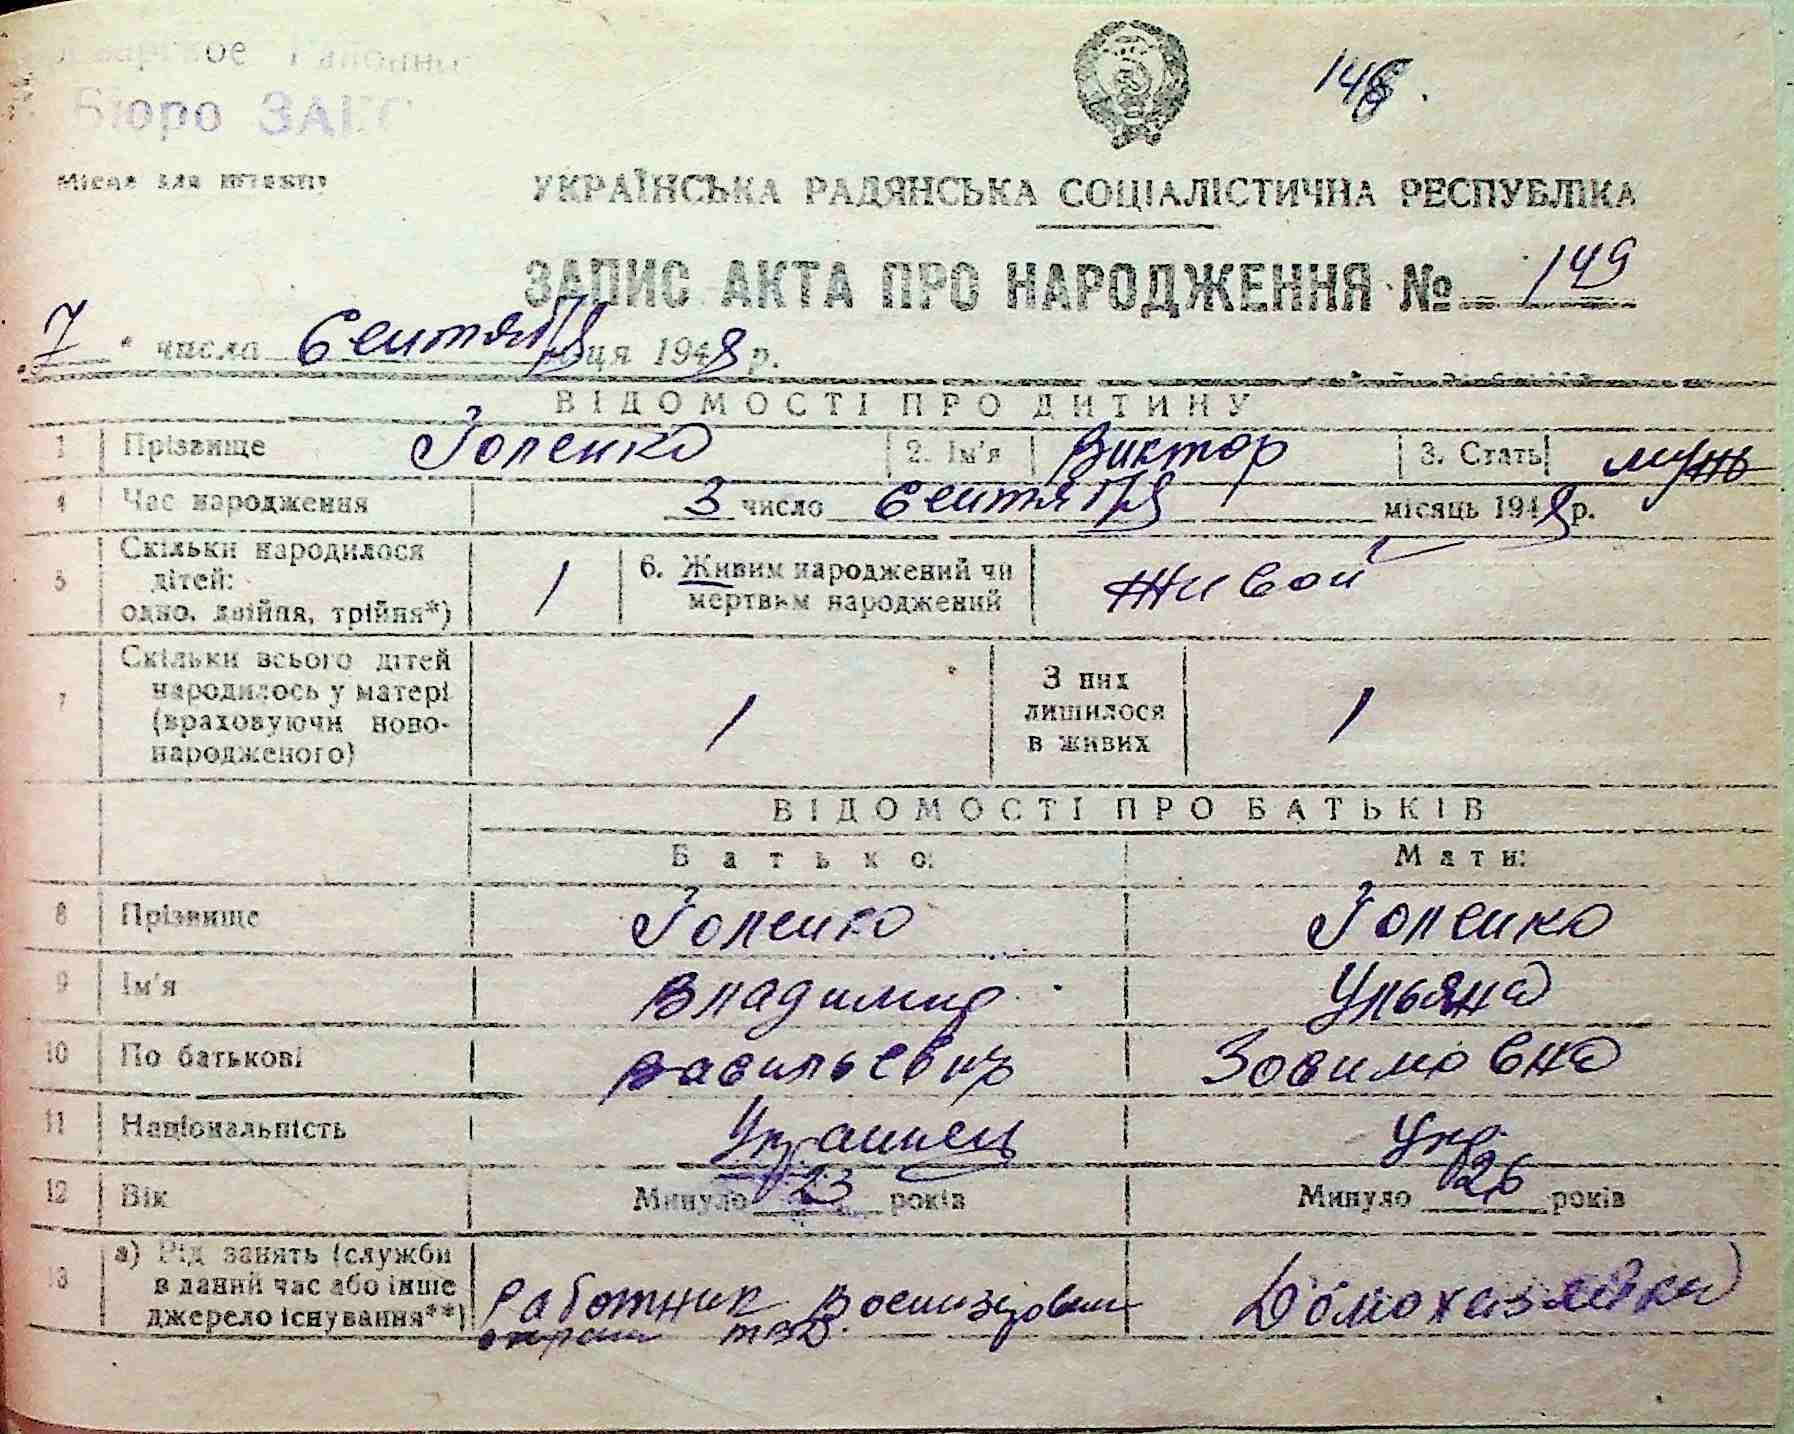 Бюро ЗАГС
148.
Місце для штампу
УКРАЇНСЬКА РАДЯНСЬКА СОЦІАЛІСТИЧНА РЕСПУБЛІКА
ЗАПИС АКТА ПРО НАРОДЖЕННЯ № 149
"7" числа Сентября місяця 1948 р.
ВІДОМОСТІ ПРО ДИТИНУ
1 Прізвище Голенко 2. Ім'я Виктор 3. Стать муж
4 Час народження 3 число Сентября місяць 1948 р.
5 Скільки народилося дітей: одно, двійня, трійня*) 1 6. Живим народжений чи мертвим народжений живой
7 Скільки всього дітей народилось у матері (враховуючи новонародженого) 1 З них лишилося в живих 1
ВІДОМОСТІ ПРО БАТЬКІВ
Батько: Мати:
8 Прізвище Голенко Голенко
9 Ім'я Владимир Ульяна
10 По батькові Васильевич Зосимовна
11 Національність Украинец Укр.
12 Вік Минуло 23 років Минуло 26 років
13 а) Рід занять (служби в даний час або інше джерело існування**) Работник Военизирован Домохазяйка
охраны